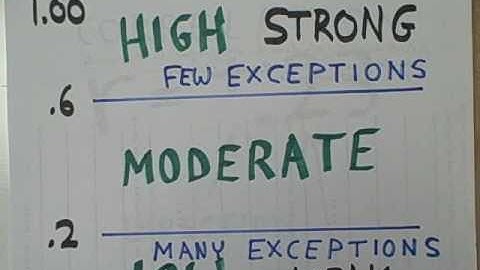 1.00 HIGH STRONG
FEW EXCEPTIONS
.6
MODERATE
.2
MANY EXCEPTIONS